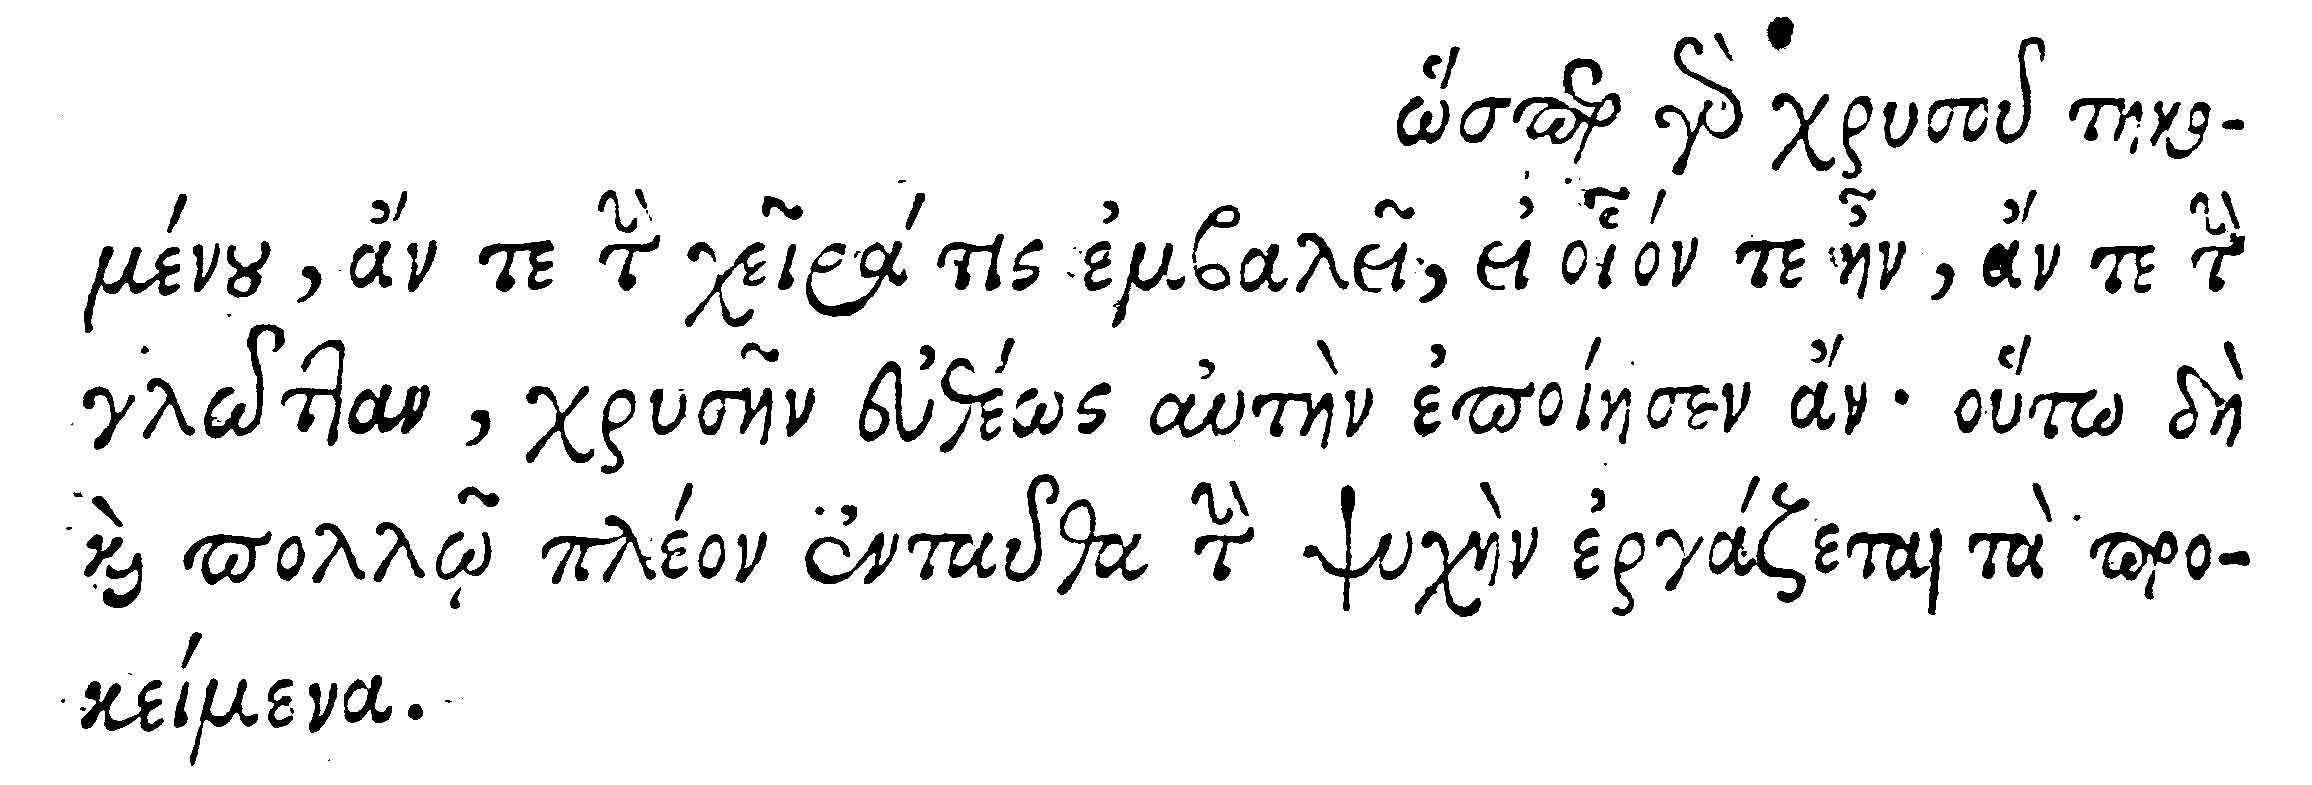 ὥσπερ γὰρ χρυσοῦ τηκο-
μένου, ἄν τε τὴν χεῖρά τις ἐμβαλεῖ, εἰ οἷόν τε ἦν, ἄν τε τὴν
γλῶτταν, χρυσῆν εὐθέως αὐτὴν ἐποίησεν ἄν· οὕτω δὴ
καὶ πολλῷ πλέον ἐνταῦθα τὴν ψυχὴν ἐργάζεται τὰ προ-
κείμενα.